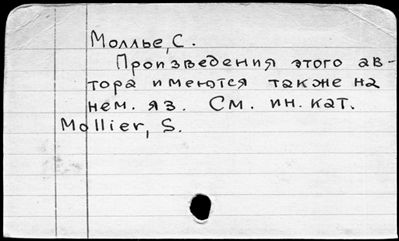 Моллье, С.
Произведения этого ав-
тора имеются также на
нем. яз. См. ин. кат.
Mollier, S.